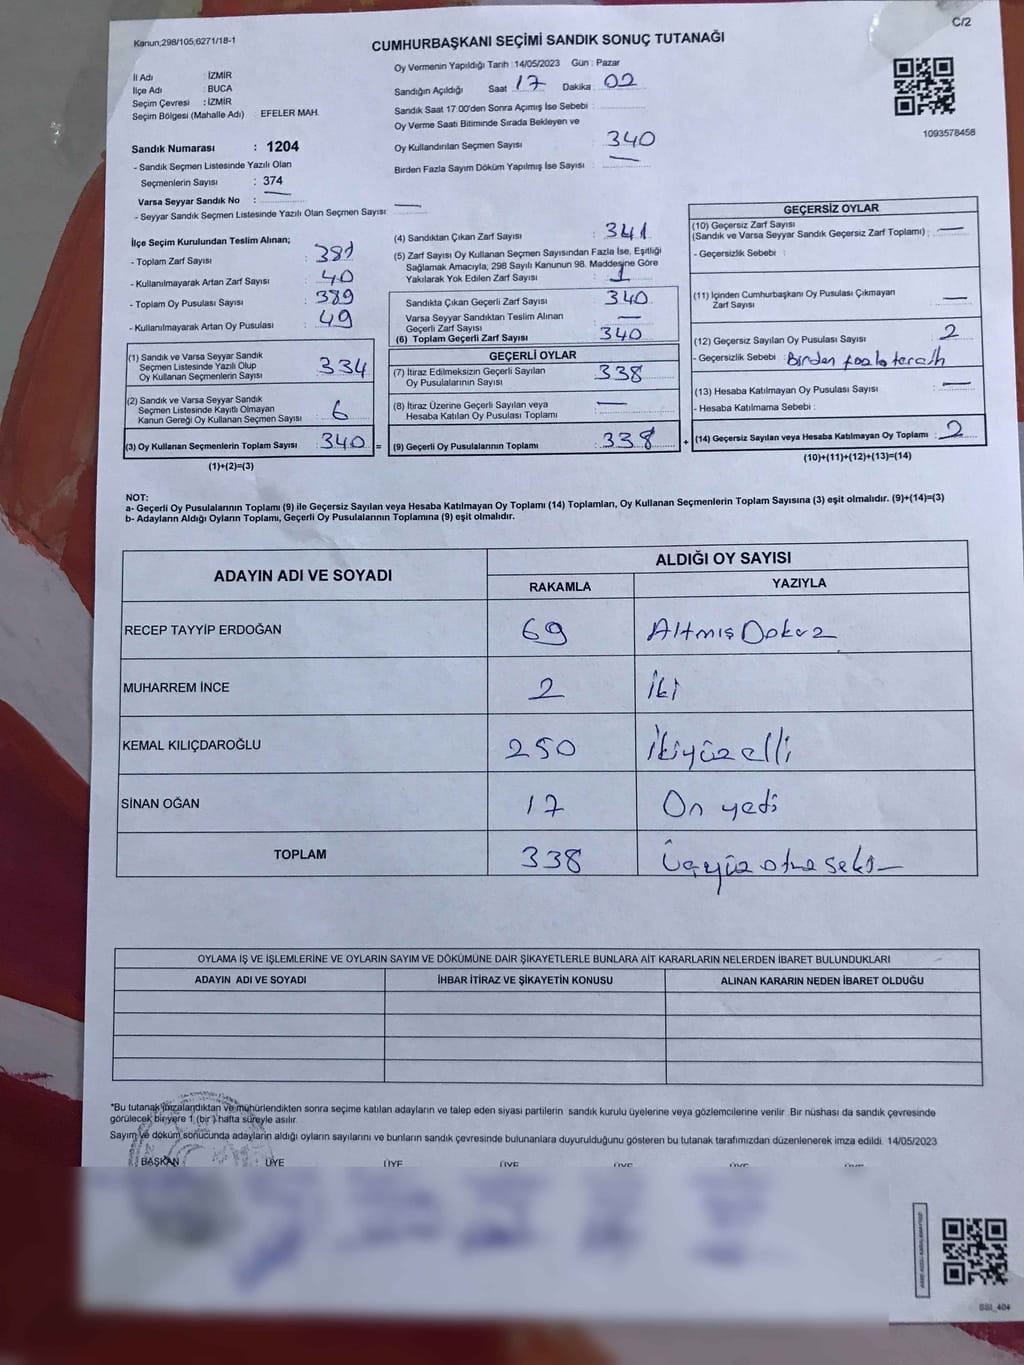 C/2
Kanun;298/105;6271/18-1
CUMHURBAŞKANI SEÇİMİ SANDIK SONUÇ TUTANAĞI
İl Adı : İZMİR
İlçe Adı : BUCA
Seçim Çevresi : İZMİR
Seçim Bölgesi (Mahalle Adı) : EFELER MAH.
Sandık Numarası : 1204
- Sandık Seçmen Listesinde Yazılı Olan
Seçmenlerin Sayısı : 374
Varsa Seyyar Sandık No : —
- Seyyar Sandık Seçmen Listesinde Yazılı Olan Seçmen Sayısı: —
Oy Vermenin Yapıldığı Tarih :14/05/2023 Gün : Pazar
Sandığın Açıldığı Saat 17 Dakika : 02
Sandık Saat 17:00'den Sonra Açımış İse Sebebi :
Oy Verme Saati Bitiminde Sırada Bekleyen ve
Oy Kullandırılan Seçmen Sayısı : 340
Birden Fazla Sayım Döküm Yapılmış İse Sayısı : —
1093578458
İlçe Seçim Kurulundan Teslim Alınan;
- Toplam Zarf Sayısı : 381
- Kullanılmayarak Artan Zarf Sayısı : 40
- Toplam Oy Pusulası Sayısı : 389
- Kullanılmayarak Artan Oy Pusulası : 49
(1) Sandık ve Varsa Seyyar Sandık
Seçmen Listesinde Yazılı Olup
Oy Kullanan Seçmenlerin Sayısı : 334
(2) Sandık ve Varsa Seyyar Sandık
Seçmen Listesinde Kayıtlı Olmayan
Kanun Gereği Oy Kullanan Seçmen Sayısı : 6
(3) Oy Kullanan Seçmenlerin Toplam Sayısı : 340 =
(1)+(2)=(3)
(4) Sandıktan Çıkan Zarf Sayısı : 341
(5) Zarf Sayısı Oy Kullanan Seçmen Sayısından Fazla İse, Eşitliği
Sağlamak Amacıyla, 298 Sayılı Kanunun 98. Maddesine Göre
Yakılarak Yok Edilen Zarf Sayısı : 1
Sandıkta Çıkan Geçerli Zarf Sayısı : 340
Varsa Seyyar Sandıktan Teslim Alınan
Geçerli Zarf Sayısı : —
(6) Toplam Geçerli Zarf Sayısı : 340
GEÇERLİ OYLAR
(7) İtiraz Edilmeksizin Geçerli Sayılan
Oy Pusulalarının Sayısı : 338
(8) İtiraz Üzerine Geçerli Sayılan veya
Hesaba Katılan Oy Pusulası Toplamı : —
(9) Geçerli Oy Pusulalarının Toplamı : 338 +
GEÇERSİZ OYLAR
(10) Geçersiz Zarf Sayısı
(Sandık ve Varsa Seyyar Sandık Geçersiz Zarf Toplamı) : —
- Geçersizlik Sebebi :
(11) İçinden Cumhurbaşkanı Oy Pusulası Çıkmayan
Zarf Sayısı : —
(12) Geçersiz Sayılan Oy Pusulası Sayısı : 2
- Geçersizlik Sebebi : Birden fazla tercih
(13) Hesaba Katılmayan Oy Pusulası Sayısı : —
- Hesaba Katılmama Sebebi :
(14) Geçersiz Sayılan veya Hesaba Katılmayan Oy Toplamı : 2
(10)+(11)+(12)+(13)=(14)
NOT:
a- Geçerli Oy Pusulalarının Toplamı (9) ile Geçersiz Sayılan veya Hesaba Katılmayan Oy Toplamı (14) Toplamları, Oy Kullanan Seçmenlerin Toplam Sayısına (3) eşit olmalıdır. (9)+(14)=(3)
b- Adayların Aldığı Oyların Toplamı, Geçerli Oy Pusulalarının Toplamına (9) eşit olmalıdır.
ADAYIN ADI VE SOYADI ALDIĞI OY SAYISI
RAKAMLA YAZIYLA
RECEP TAYYİP ERDOĞAN 69 Altmış Dokuz
MUHARREM İNCE 2 İki
KEMAL KILIÇDAROĞLU 250 İkiyüz elli
SİNAN OĞAN 17 On yedi
TOPLAM 338 Üçyüz otuz seks
OYLAMA İŞ VE İŞLEMLERİNE VE OYLARIN SAYIM VE DÖKÜMÜNE DAİR ŞİKAYETLERLE BUNLARA AİT KARARLARIN NELERDEN İBARET BULUNDUKLARI
ADAYIN ADI VE SOYADI İHBAR İTİRAZ VE ŞİKAYETİN KONUSU ALINAN KARARIN NEDEN İBARET OLDUĞU
*Bu tutanak imzalandıktan ve mühürlendikten sonra seçime katılan adayların ve talep eden siyasi partilerin sandık kurulu üyelerine veya gözlemcilerine verilir. Bir nüshası da sandık çevresinde
görülecek bir yere 1 (bir) hafta süreyle asılır.
Sayım ve döküm sonucunda adayların aldığı oyların sayılarını ve bunların sandık çevresinde bulunanlara duyurulduğunu gösteren bu tutanak tarafımızdan düzenlenerek imza edildi. 14/05/2023
BAŞKAN ÜYE ÜYE ÜYE ÜYE ÜYE